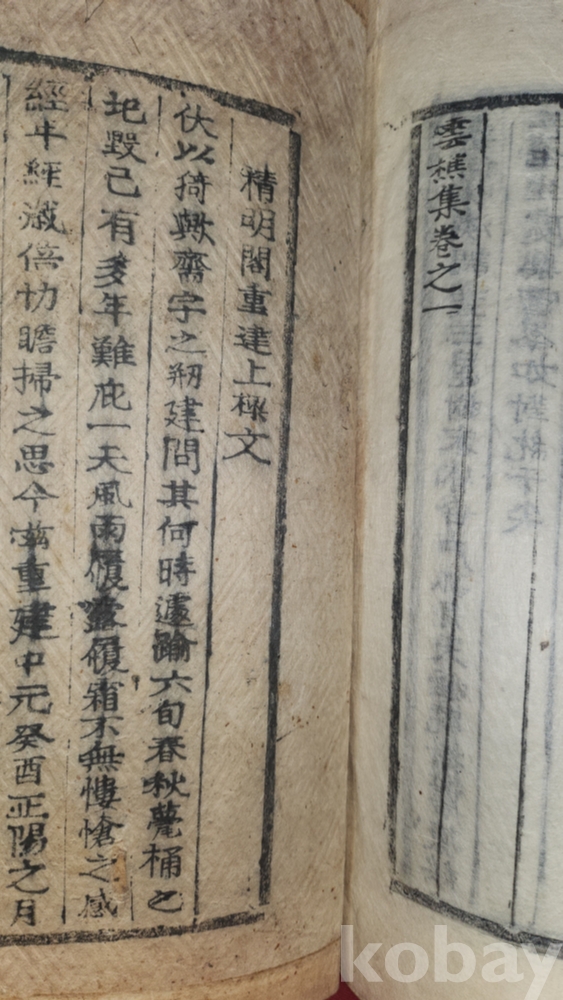 雲樵集卷之一
精明閣重建上樑文
伏以猗歟齋宇之刱建問其何時遽踰六旬春秋甍桷之
圮毀已有多年難庇一天風雨履露履霜不無悽愴之感
經年經歲倍切瞻掃之思今玆重建中元癸酉正陽之月
kobay